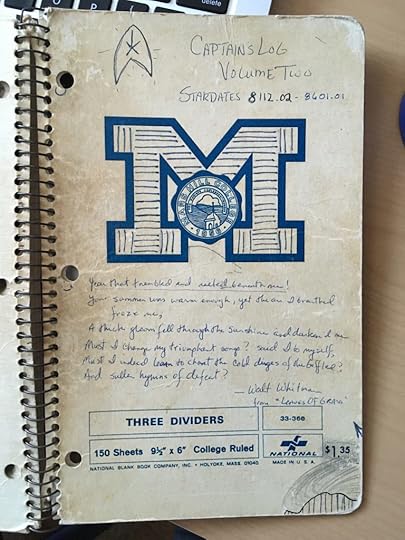 CAPTAINS LOG
VOLUME TWO
STARDATES 8112.02 - 8601.01
M
MARS HILL COLLEGE
1856
Year that trembled and reeled beneath me!
Your summer wind was warm enough, yet the air I breathed
froze me,
A thick gloom fell through the sunshine and darken'd me
Must I change my triumphant songs? said I to myself,
Must I indeed learn to chant the cold dirges of the baffled?
And sullen hymns of defeat?
— Walt Whitman
from "Leaves OF GRASS"
THREE DIVIDERS
33-368
150 Sheets 9½" x 6" College Ruled
NATIONAL
MADE IN U.S.A.
$1.35
NATIONAL BLANK BOOK COMPANY, INC. • HOLYOKE, MASS. 01040